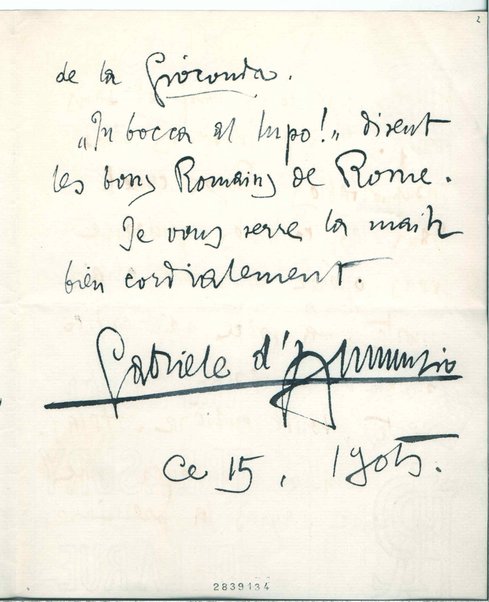 2
de la Gioconda.
„In bocca al lupo!„ disent
les bons Romains de Rome.
Je vous serre la main
bien cordialement.
Gabriele d'Annunzio
Ce 15, 1905.
2839134